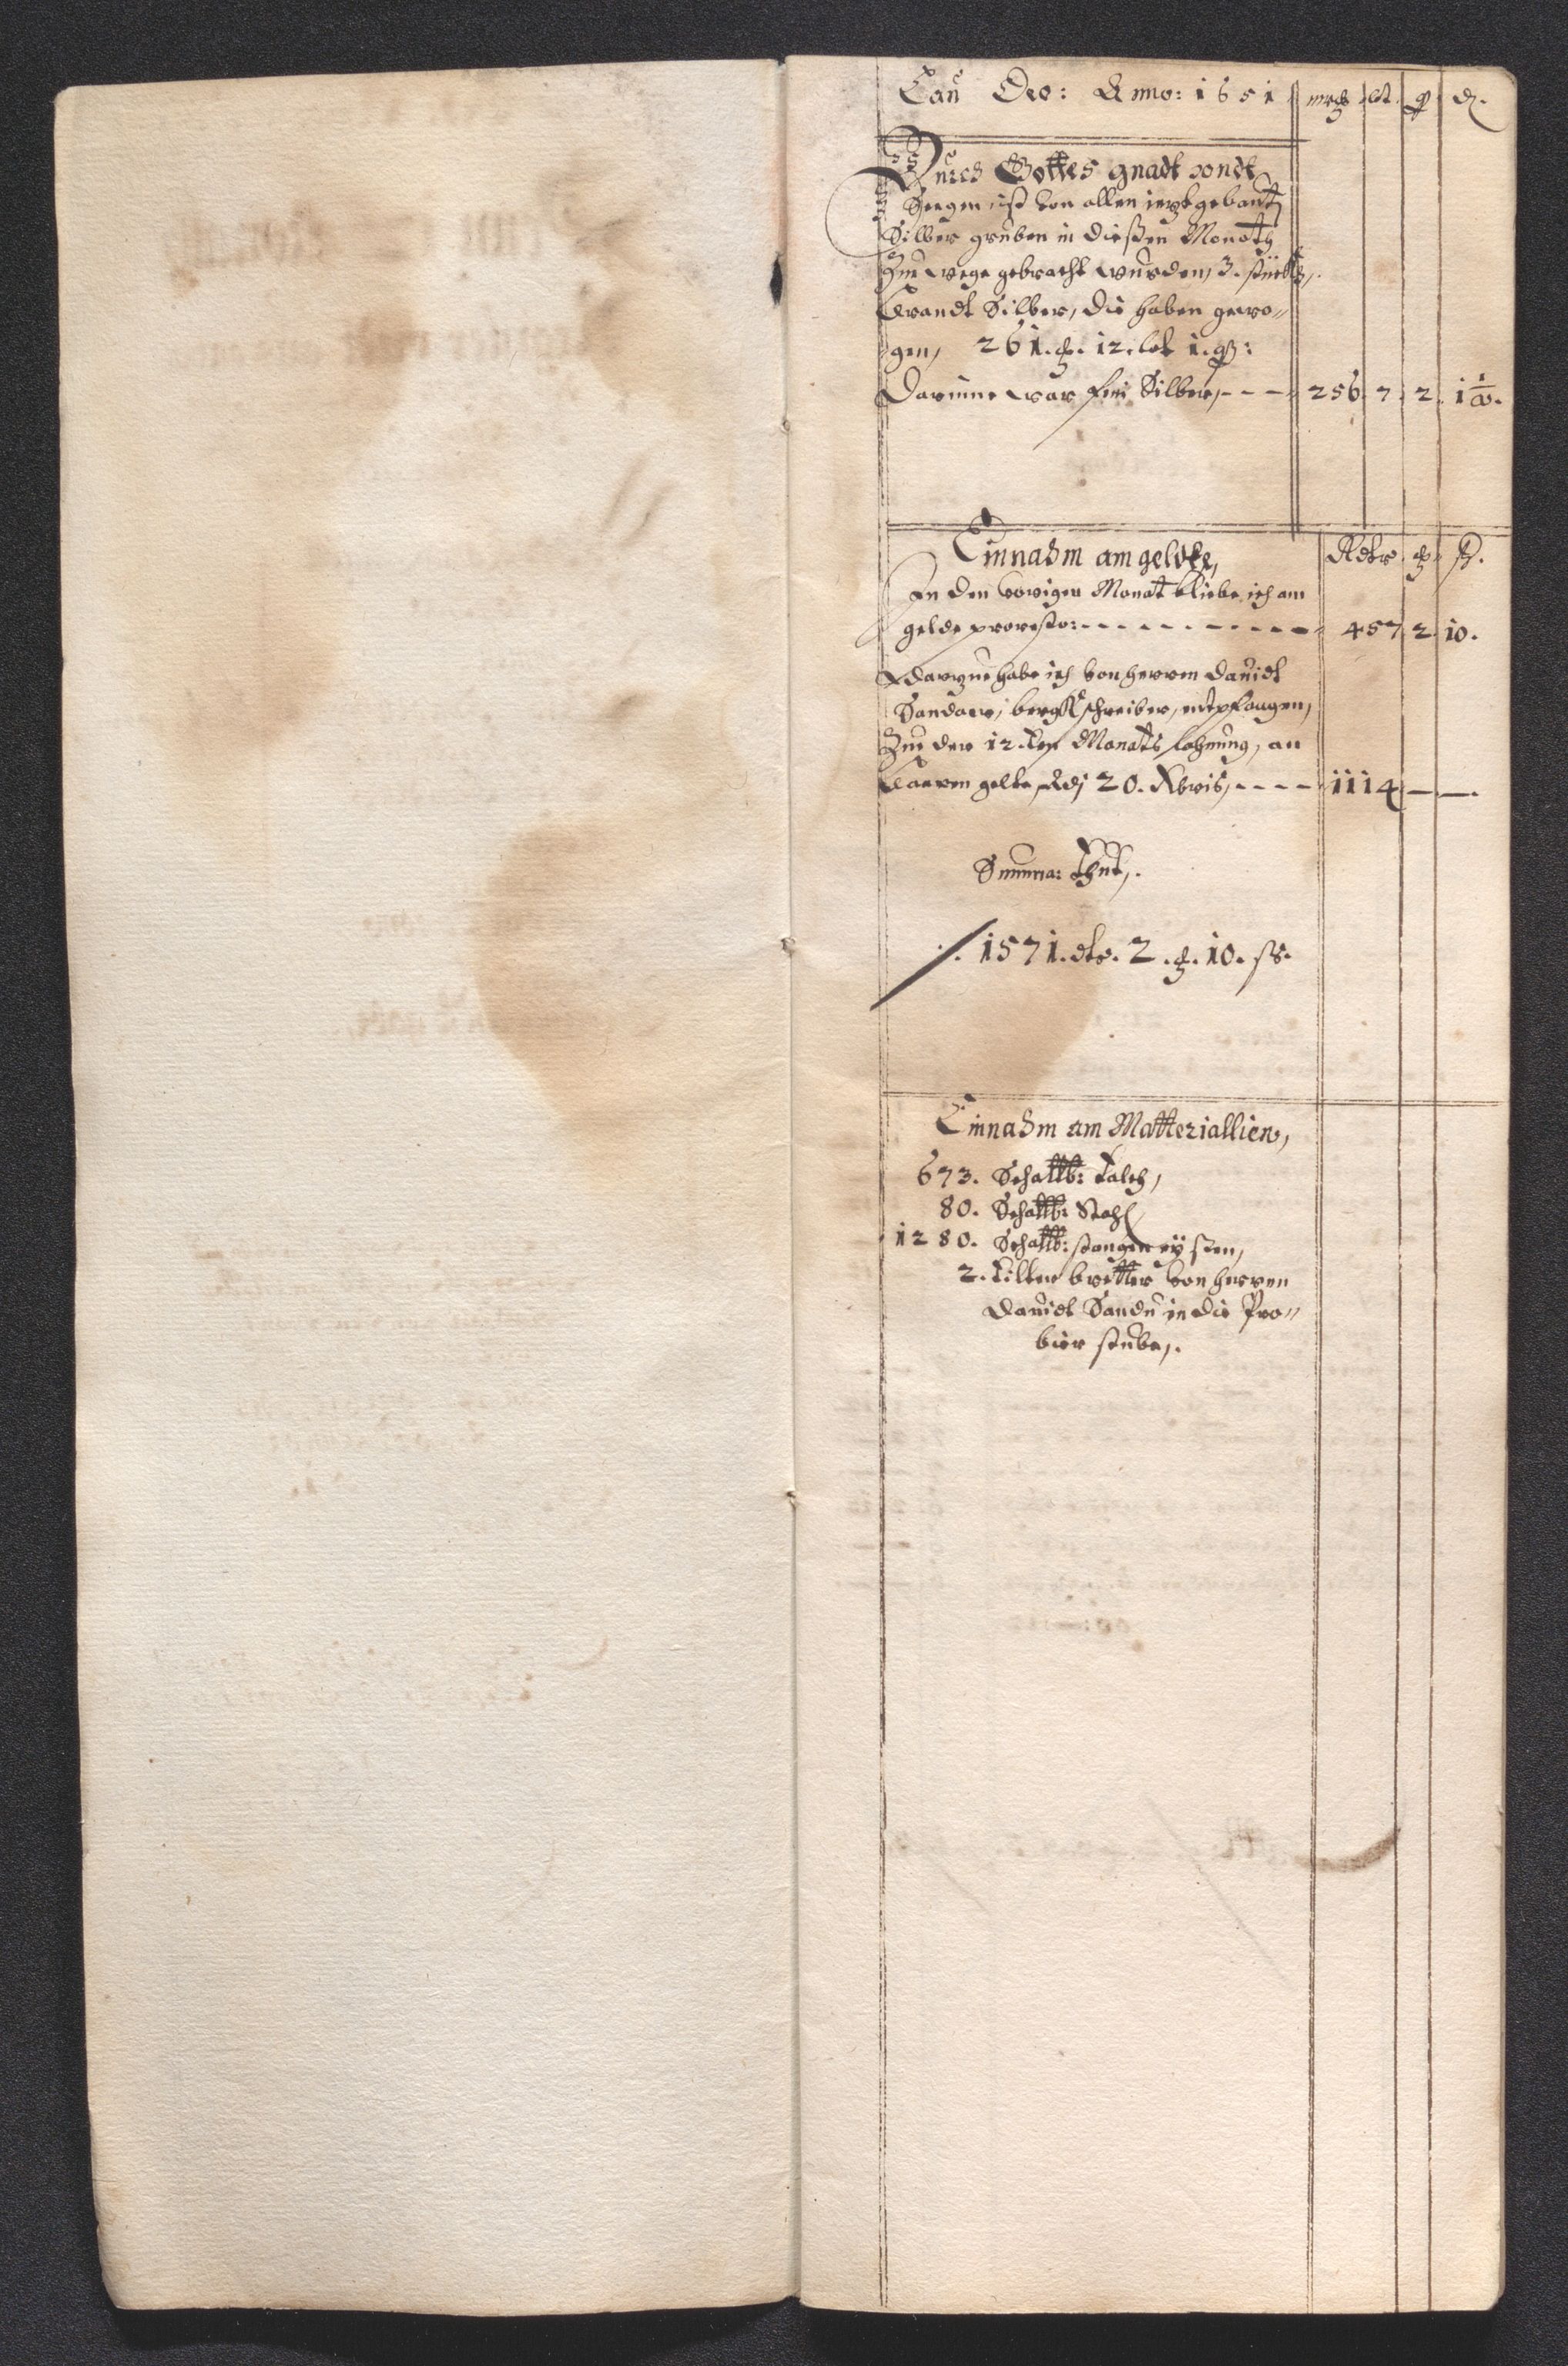 Lau Deo: Anno: 1651 mrck lot q d.
Durch Gottes gnadt vondt
Seegen, ist von allen ietzt gebautt
Silber gruben in dießen Monath
Zue wege gebracht wurden, 3. stück
Brandt Silber, die haben gewo„
gen, 261. ₰. 12. lot 1. q:
Darinne war fein Silber, - - - 256 7 2 1 1/2.
Einnahm am geldte, Rdtr ₰ ß.
In den vorigen Monat bliebe ich am
gelde pro resto: - - - - - - - - - - 457 2 10.
Darzue habe ich von herren Dauidt
Sandaw, bergkschreiber, entpfangen,
Zue der 12. ten Monats lohnung, an
baaren gelte, Adj 20. Xbris, - - - - 1114 — —.
Summa: thut,.
/. 1571. dtr. 2. ₰. 10. ß.
Einnahm am Matteriallien,
673. Schallb: talch,
80. Schallb: Stahl
1280. Schallb: stangen eÿsen,
2. tilter bretter von herren
Dauidt Sandu in die Pro„
bier stube,.